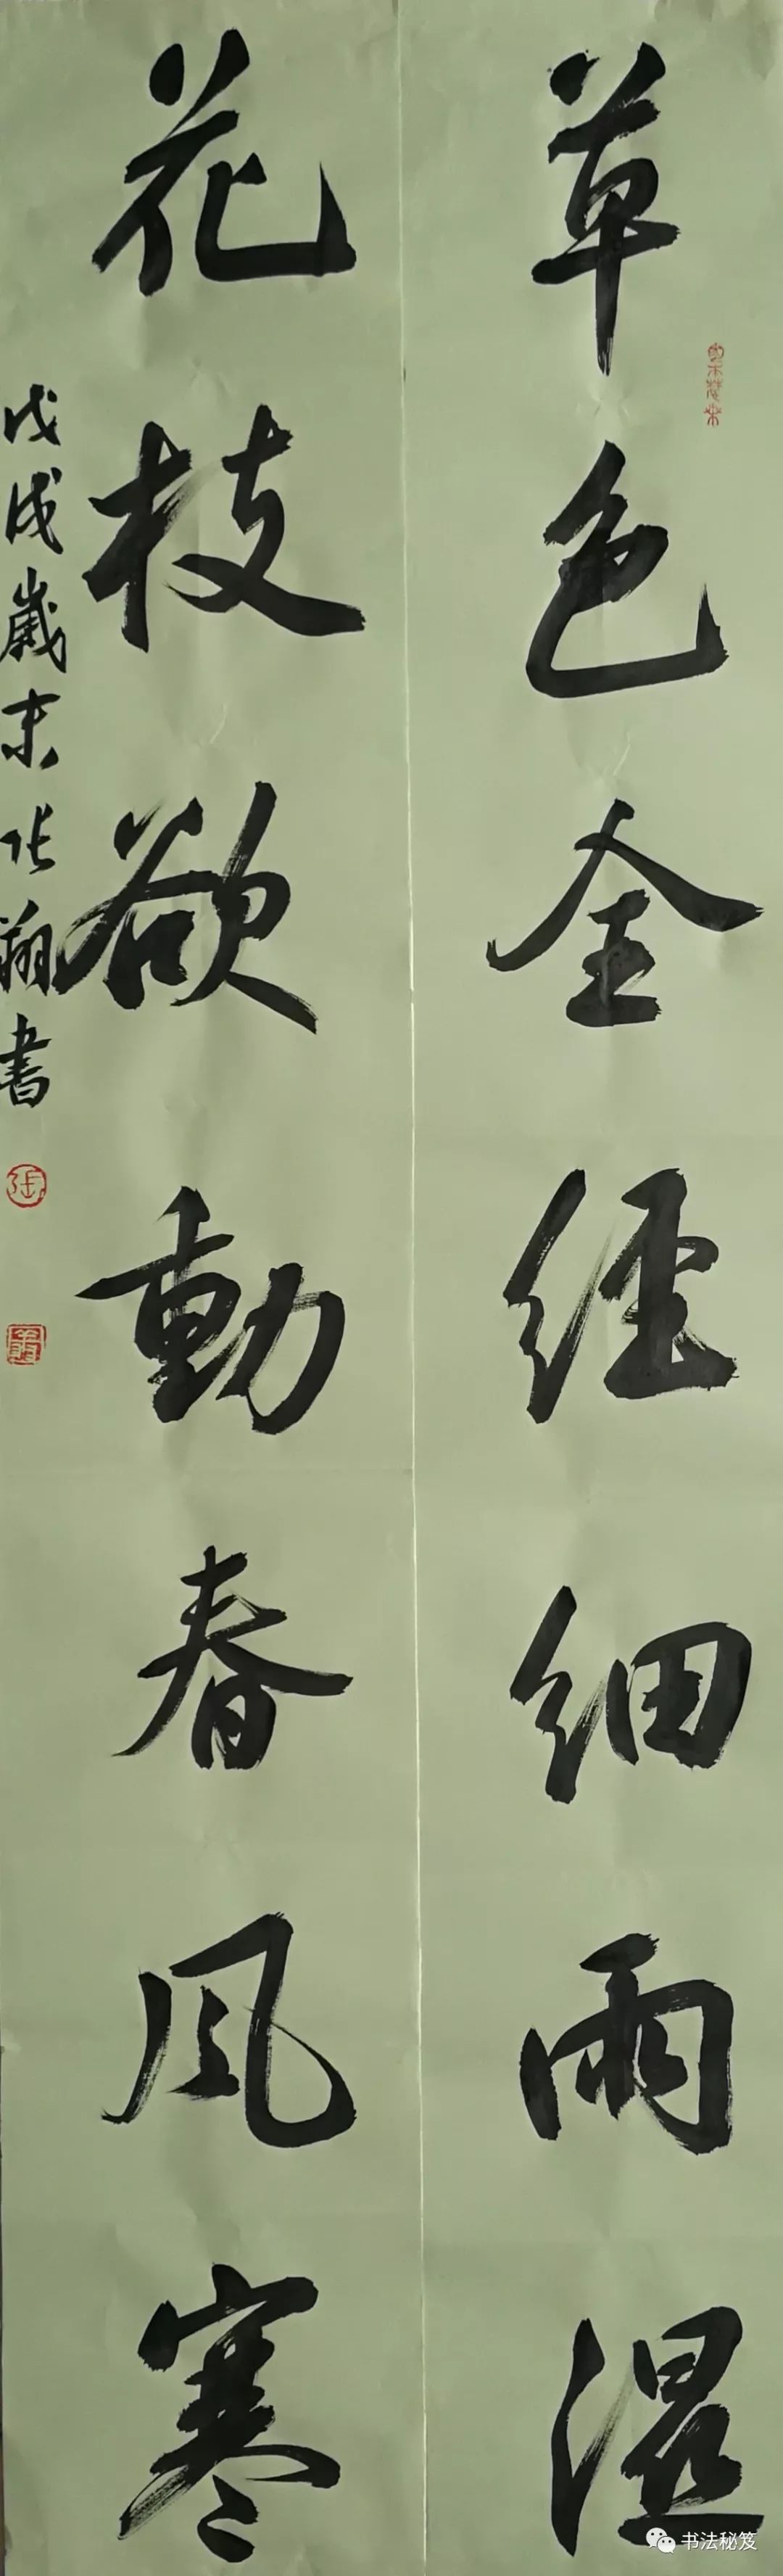 草色全經細雨濕
花枝欲動春風寒
戊戌歲末張翔書
張
书法秘笈